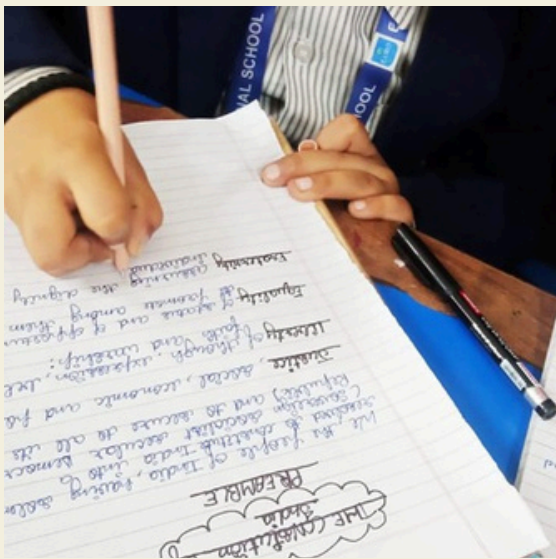 THE CONSTITUTION
India
PREAMBLE
We the people of India, having solem
resolved to constitute India, into a
(sovereign socialist secular Democr
Republic) and to secure to all its
Justice, social, economic and po
Liberty of though, expression, bel
of faith and worship:
Equality of status and of opportun
promote among them
Fraternity assuring the dignity
individual
NAL SCHOOL
OOL